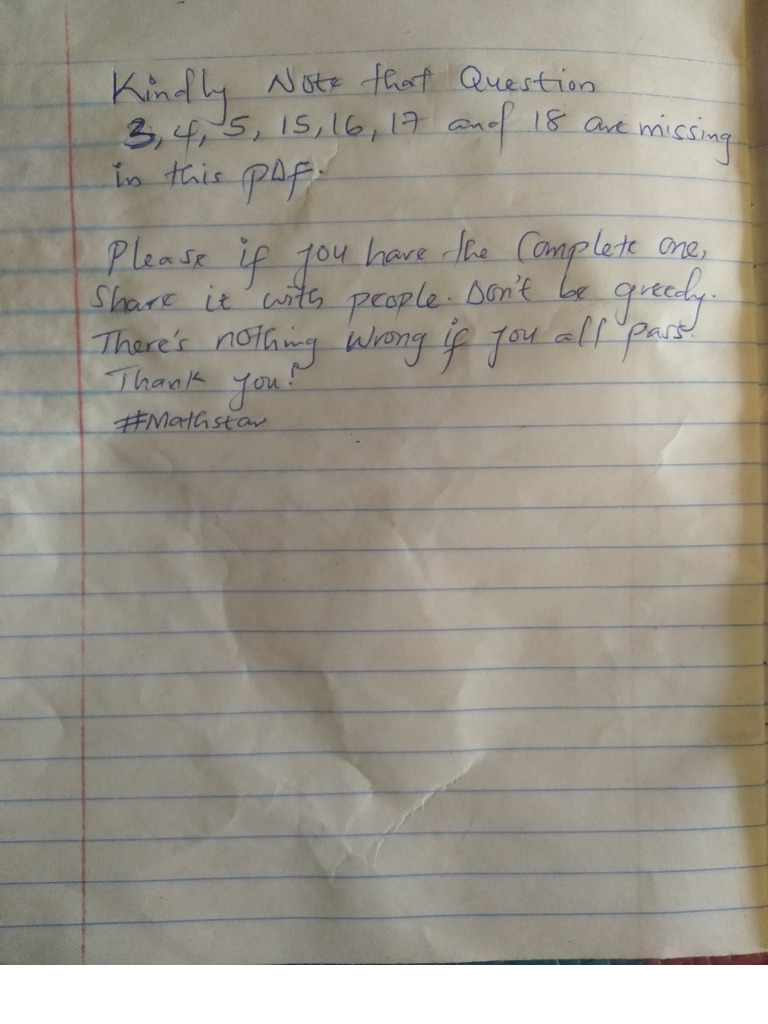 Kindly Note that Question
3, 4, 5, 15, 16, 17 and 18 are missing
in this pDf.
Please if you have the Complete one,
Share it with people. Don't be greedy.
There's nothing wrong if you all pass.
Thank you!
#Mathstar